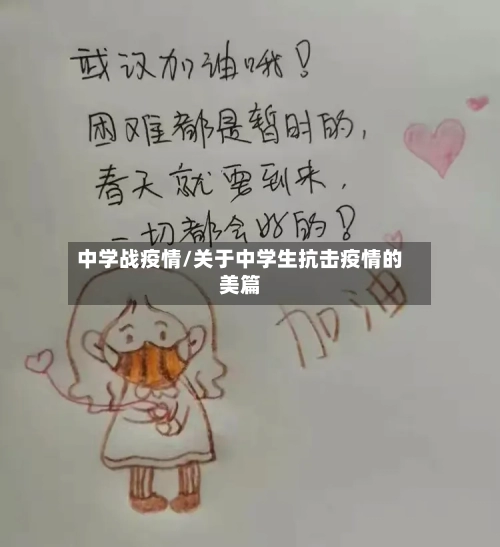 武汉加油哦!
困难都是暂时的,
春天就要到来,
一切都会好的?
中学战疫情/关于中学生抗击疫情的
美篇
加油